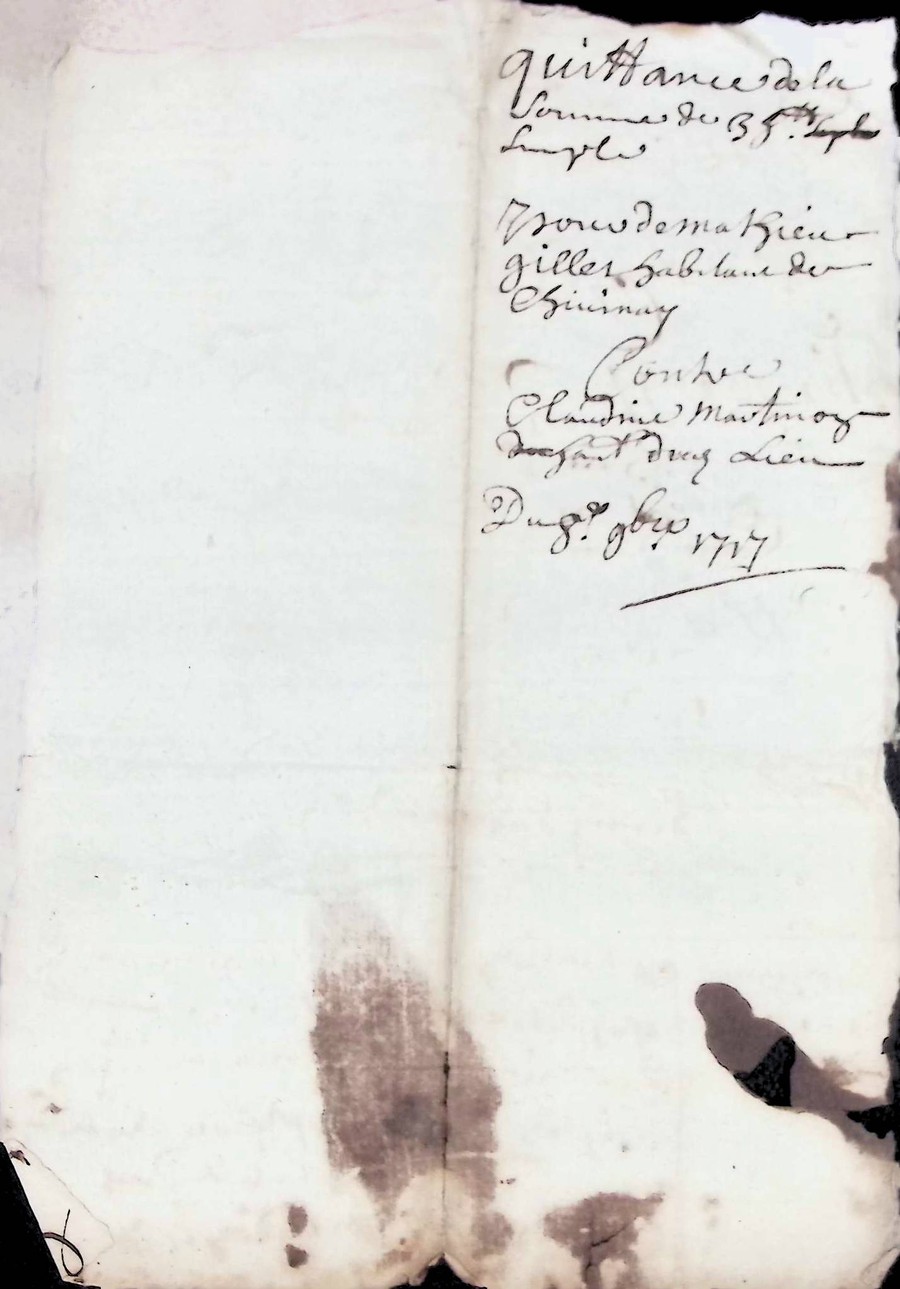 quittance de la
Somme de 35ᵗᵗ
Simple
Pour de mathieu
gilles habitant de
Chivinay
Contre
Claudine Martinoy
dud Lieu
Du 8ᵉ 9bre 1717